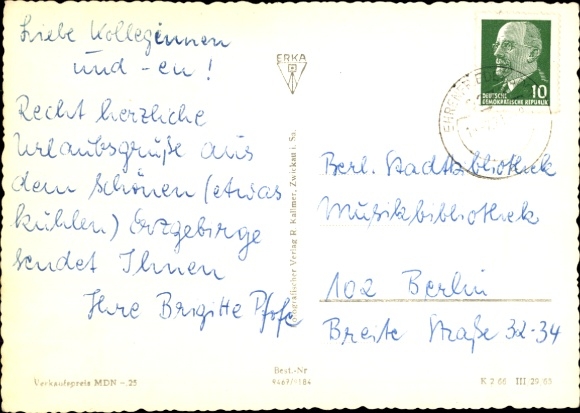 Liebe Kolleginnen
und -en!
Recht herzliche
Urlaubsgrüße aus
dem schönen (etwas
kühlen) Erzgebirge
sendet Ihnen
Ihre Brigitte
ERKA
Verlag R. Kallmer, Zwickau i. Sa.
10
DEUTSCHE
DEMOKRATISCHE REPUBLIK
Berl. Stadtbibliothek
Musikbibliothek
102 Berlin
Breite Straße 32-34
Verkaufspreis MDN -.25
Best.-Nr
9467/9184
K 2 66 III 29 65